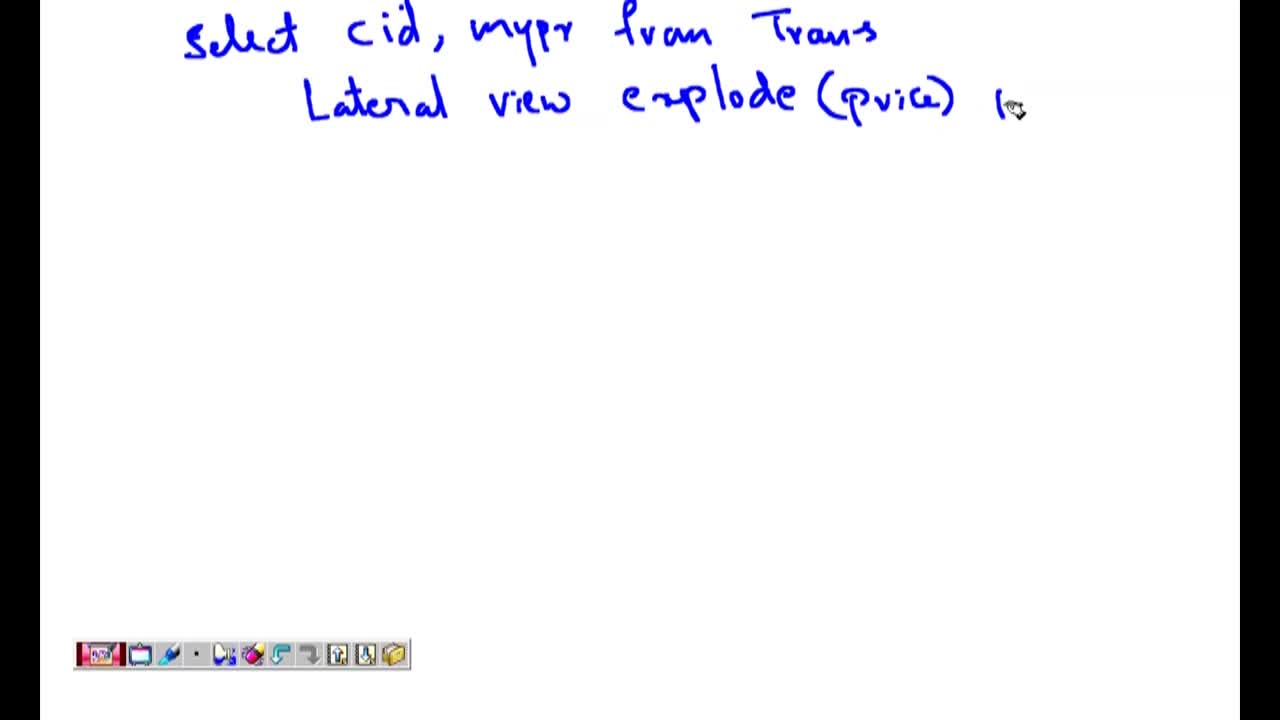 select cid, mypr from Trans
Lateral view explode (price)